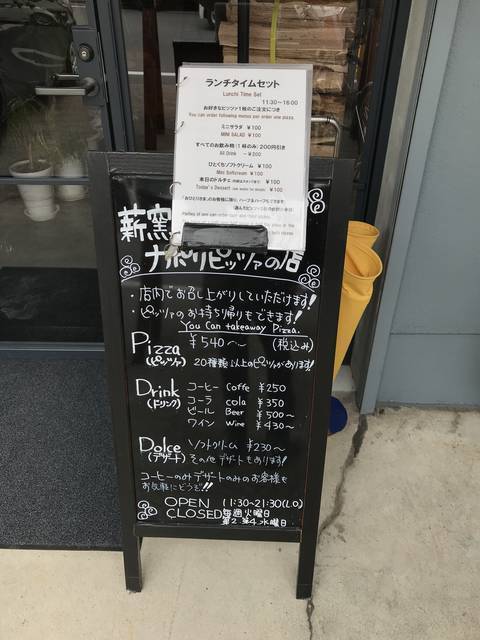 ランチタイムセット
Lunch Time Set
11:30~16:00
お好きなピッツァ1枚のご注文につき
You can order following menus per order one pizza.
ミニサラダ ¥100
MINI SALAD ¥100
すべてのお飲み物(1杯のみ)200円引き
All Drink -¥200
ひとくちソフトクリーム ¥100
Mini Softcream ¥100
本日のドルチェ ¥100
Today's Dessert ¥100
薪窯
ナポリピッツァの店
・店内でお召し上がりしていただけます!
・ピッツァのお持ち帰りもできます!
You Can takeaway Pizza.
Pizza ¥540~ (税込み)
(ピッツァ) 20種類以上のピッツァがあります!
Drink コーヒー Coffe ¥250
(ドリンク) コーラ cola ¥350
ビール Beer ¥500~
ワイン Wine ¥430~
Dolce ソフトクリーム ¥230~
(デザート) その他デザートもあります!
コーヒーのみデザートのみのお客様も
お気軽にどうぞ!!
OPEN 11:30~21:30(L.O)
CLOSED 毎週火曜日
第2.第4.水曜日